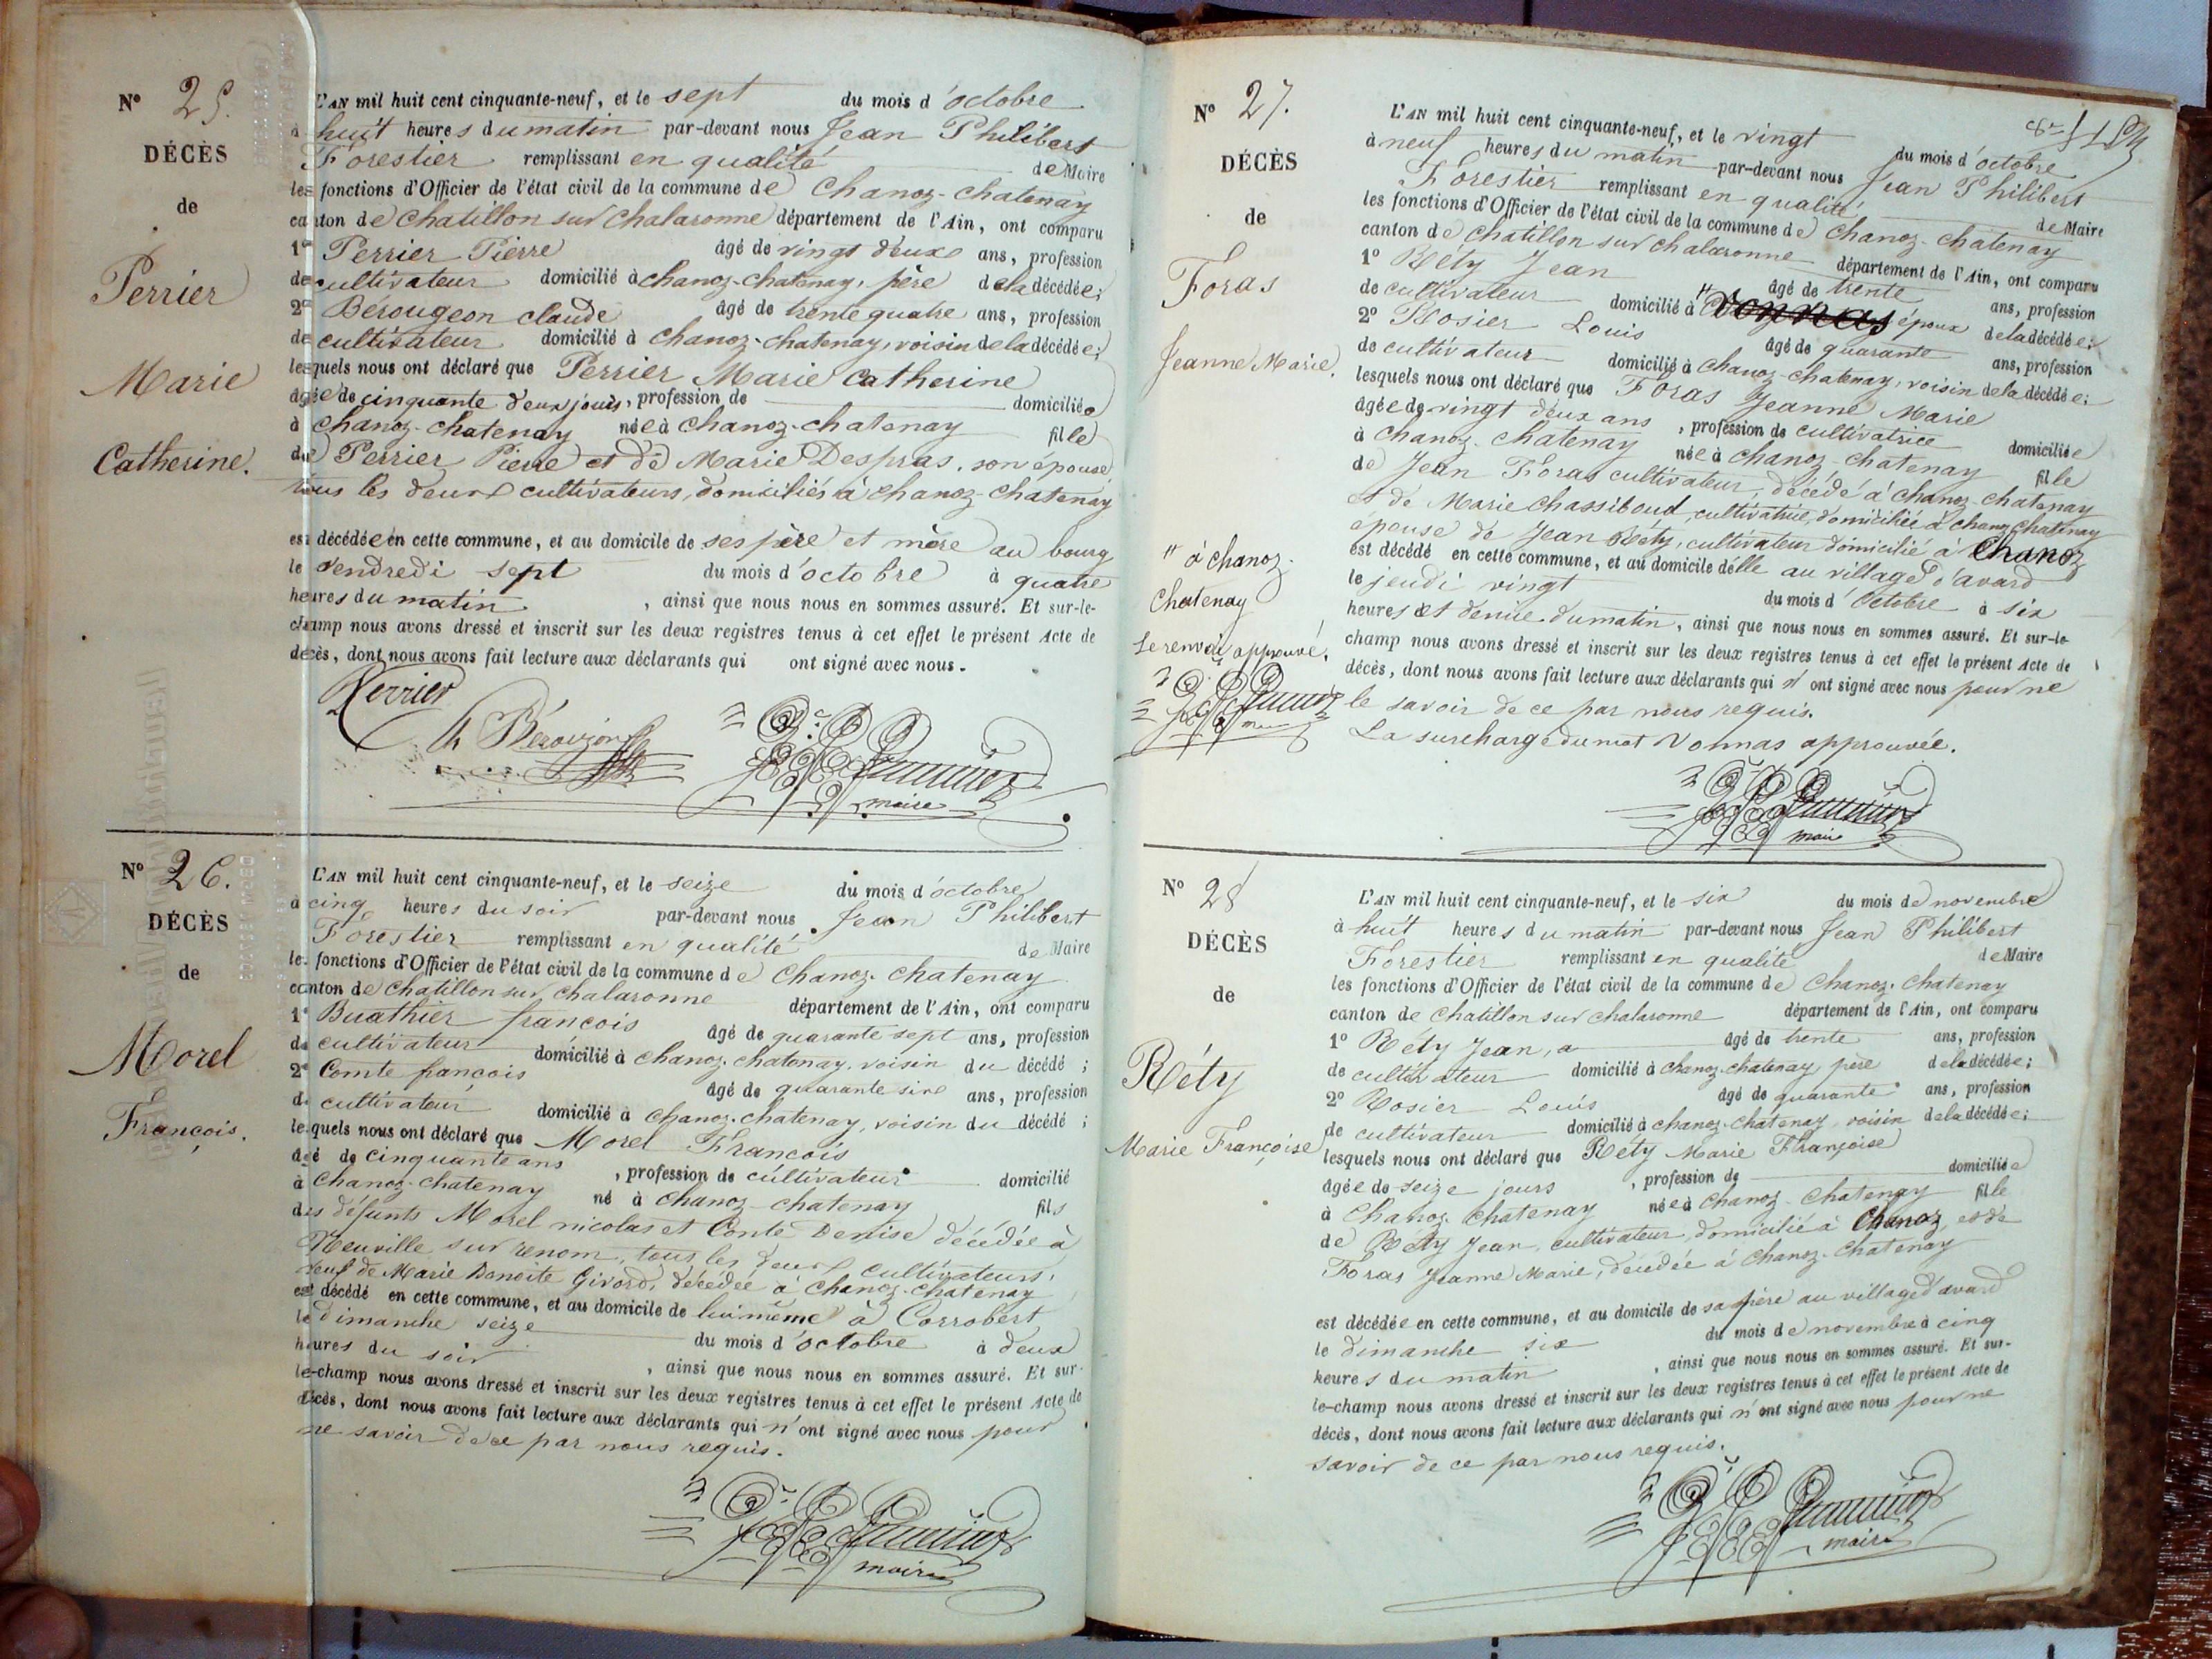 N° 25.
DÉCÈS
de
Perrier
Marie
Catherine.
L'AN mil huit cent cinquante-neuf, et le sept du mois d'octobre
à huit heures du matin par-devant nous Jean Philibert
Forestier remplissant en qualité de Maire
les fonctions d'Officier de l'état civil de la commune de Chanoz-Chatenay
canton de Chatillon sur Chalaronne département de l'Ain, ont comparu
1° Perrier Pierre âgé de vingt deux ans, profession
de cultivateur domicilié à Chanoz-Chatenay, père de la décédée;
2° Bérougeon claude âgé de trente quatre ans, profession
de cultivateur domicilié à Chanoz-Chatenay, voisin de la décédée;
lesquels nous ont déclaré que Perrier Marie Catherine
âgée de cinquante deux jours, profession de domiciliée
à Chanoz-Chatenay née à Chanoz-Chatenay fille
de Perrier Pierre et de Marie Despras, son épouse
tous les deux cultivateurs, domiciliés à Chanoz-Chatenay
est décédée en cette commune, et au domicile de ses père et mère au bourg
le vendredi sept du mois d'octobre à quatre
heures du matin, ainsi que nous nous en sommes assuré. Et sur-le-
champ nous avons dressé et inscrit sur les deux registres tenus à cet effet le présent Acte de
décès, dont nous avons fait lecture aux déclarants qui ont signé avec nous.
Perrier
maire
N° 26.
DÉCÈS
de
Morel
François.
L'AN mil huit cent cinquante-neuf, et le seize du mois d'octobre
à cinq heures du soir par-devant nous Jean Philibert
Forestier remplissant en qualité de Maire
les fonctions d'Officier de l'état civil de la commune de Chanoz-Chatenay
canton de Chatillon sur Chalaronne département de l'Ain, ont comparu
1° Buathier françois âgé de quarante sept ans, profession
de cultivateur domicilié à Chanoz-Chatenay, voisin du décédé;
2° Comte françois âgé de quarante six ans, profession
de cultivateur domicilié à Chanoz-Chatenay, voisin du décédé;
lesquels nous ont déclaré que Morel François
âgé de cinquante ans, profession de cultivateur domicilié
à Chanoz-Chatenay né à Chanoz-Chatenay fils
des défunts Morel nicolas et Conte Denise décédée à
Neuville sur renom, tous les deux cultivateurs,
veuf de Marie Benoite Givord, décédée à Chanoz-Chatenay
est décédé en cette commune, et au domicile de lui même à Corrobert
le dimanche seize du mois d'octobre à deux
heures du soir, ainsi que nous nous en sommes assuré. Et sur-
le-champ nous avons dressé et inscrit sur les deux registres tenus à cet effet le présent Acte de
décès, dont nous avons fait lecture aux déclarants qui n'ont signé avec nous pour
ne savoir de ce par nous requis.
maire
N° 27.
DÉCÈS
de
Foras
Jeanne Marie.
" à Chanoz-
Chatenay
Le renvoi approuvé.
L'AN mil huit cent cinquante-neuf, et le vingt du mois d'octobre
à neuf heures du matin par-devant nous Jean Philibert
Forestier remplissant en qualité de Maire
les fonctions d'Officier de l'état civil de la commune de Chanoz-Chatenay
canton de Chatillon sur Chalaronne département de l'Ain, ont comparu
1° Réty Jean âgé de trente ans, profession
de cultivateur domicilié à " Vonnas époux de la décédée;
2° Rosier Louis âgé de quarante ans, profession
de cultivateur domicilié à Chanoz-Chatenay, voisin de la décédée;
lesquels nous ont déclaré que Foras Jeanne Marie
âgée de vingt deux ans, profession de cultivatrice domiciliée
à Chanoz-Chatenay née à Chanoz-Chatenay fille
de Jean Foras cultivateur, décédé à Chanoz-Chatenay
et de Marie Chassiboud, cultivatrice, domiciliée à Chanoz Chatenay
épouse de Jean Réty, cultivateur domicilié à Chanoz
est décédé en cette commune, et au domicile d'elle au village d'avard
le jeudi vingt du mois d'Octobre à six
heures et demie du matin, ainsi que nous nous en sommes assuré. Et sur-le-
champ nous avons dressé et inscrit sur les deux registres tenus à cet effet le présent Acte de
décès, dont nous avons fait lecture aux déclarants qui n'ont signé avec nous pour ne
le savoir de ce par nous requis.
La surcharge du mot Vonnas approuvée.
maire
N° 28
DÉCÈS
de
Réty
Marie Françoise
L'AN mil huit cent cinquante-neuf, et le six du mois de novembre
à huit heures du matin par-devant nous Jean Philibert
Forestier remplissant en qualité de Maire
les fonctions d'Officier de l'état civil de la commune de Chanoz-Chatenay
canton de Chatillon sur Chalaronne département de l'Ain, ont comparu
1° Réty Jean, a âgé de trente ans, profession
de cultivateur domicilié à Chanoz-Chatenay père de la décédée;
2° Rosier Louis âgé de quarante ans, profession
de cultivateur domicilié à Chanoz-Chatenay voisin de la décédée;
lesquels nous ont déclaré que Réty Marie Françoise
âgée de seize jours, profession de domiciliée
à Chanoz-Chatenay née à Chanoz-Chatenay fille
de Réty Jean, cultivateur, domicilié à Chanoz, et de
Foras Jeanne Marie, décédée à Chanoz-Chatenay
est décédée en cette commune, et au domicile de sa père au village d'avard
le dimanche six du mois de novembre à cinq
heures du matin, ainsi que nous nous en sommes assuré. Et sur-
le-champ nous avons dressé et inscrit sur les deux registres tenus à cet effet le présent Acte de
décès, dont nous avons fait lecture aux déclarants qui n'ont signé avec nous pour ne
savoir de ce par nous requis.
maire